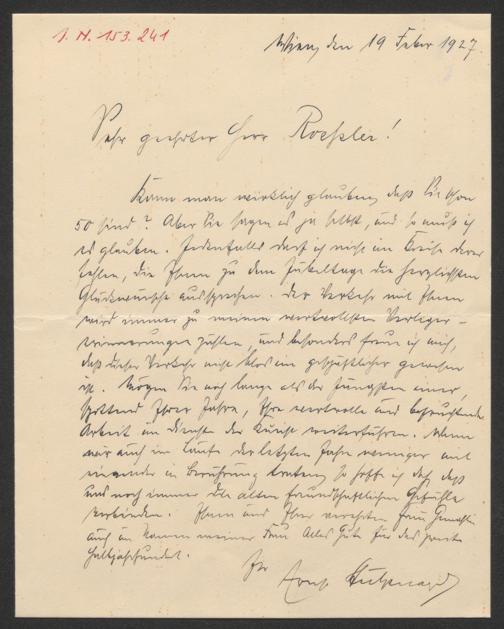 I. N. 153.241
Wien, den 19 Feber 1927.
Sehr geehrter Herr Roessler!
Kann man wirklich glauben, daß Sie schon
50 sind? Aber Sie sagen es ja selbst, und so muß ich
es glauben. Jedenfalls darf ich nicht im Kreise derer
fehlen, die Ihnen zu dem Jubeltage die herzlichsten
Glückwünsche aussprechen. Der Verkehr mit Ihnen
wird immer zu meinen wertvollsten Verleger-
erinnerungen zählen, und besonders freue ich mich,
daß dieser Verkehr nicht blos ein geschäftlicher gewesen
ist. Mögen Sie noch lange als der Jüngsten einer,
spottend Ihrer Jahre, Ihre wertvolle und befruchtende
Arbeit im Dienste der Kunst weiterführen. Wenn
wir auch im Laufe der letzten Jahre weniger mit
einander in Berührung traten, so hoffe ich doch, daß
uns noch immer die alten freundschaftlichen Gefühle
verbinden. Ihnen und Ihrer verehrten Frau Gemahlin
auch im Namen meiner Frau Alles Gute für das zweite
Halbjahrhundert.
Ihr